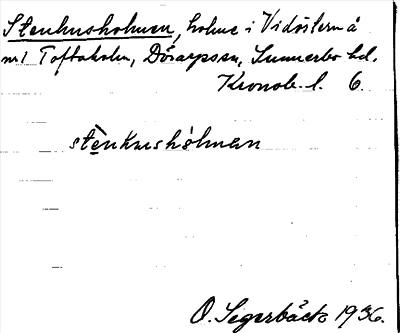 Stenhusholmen, holme i Vidöstern å
nr 1 Toftaholm, Dörarpssn, Sunnerbo hd.
Kronob. l. 6.
stènhusshòlman
O. Segerbäck 1936.